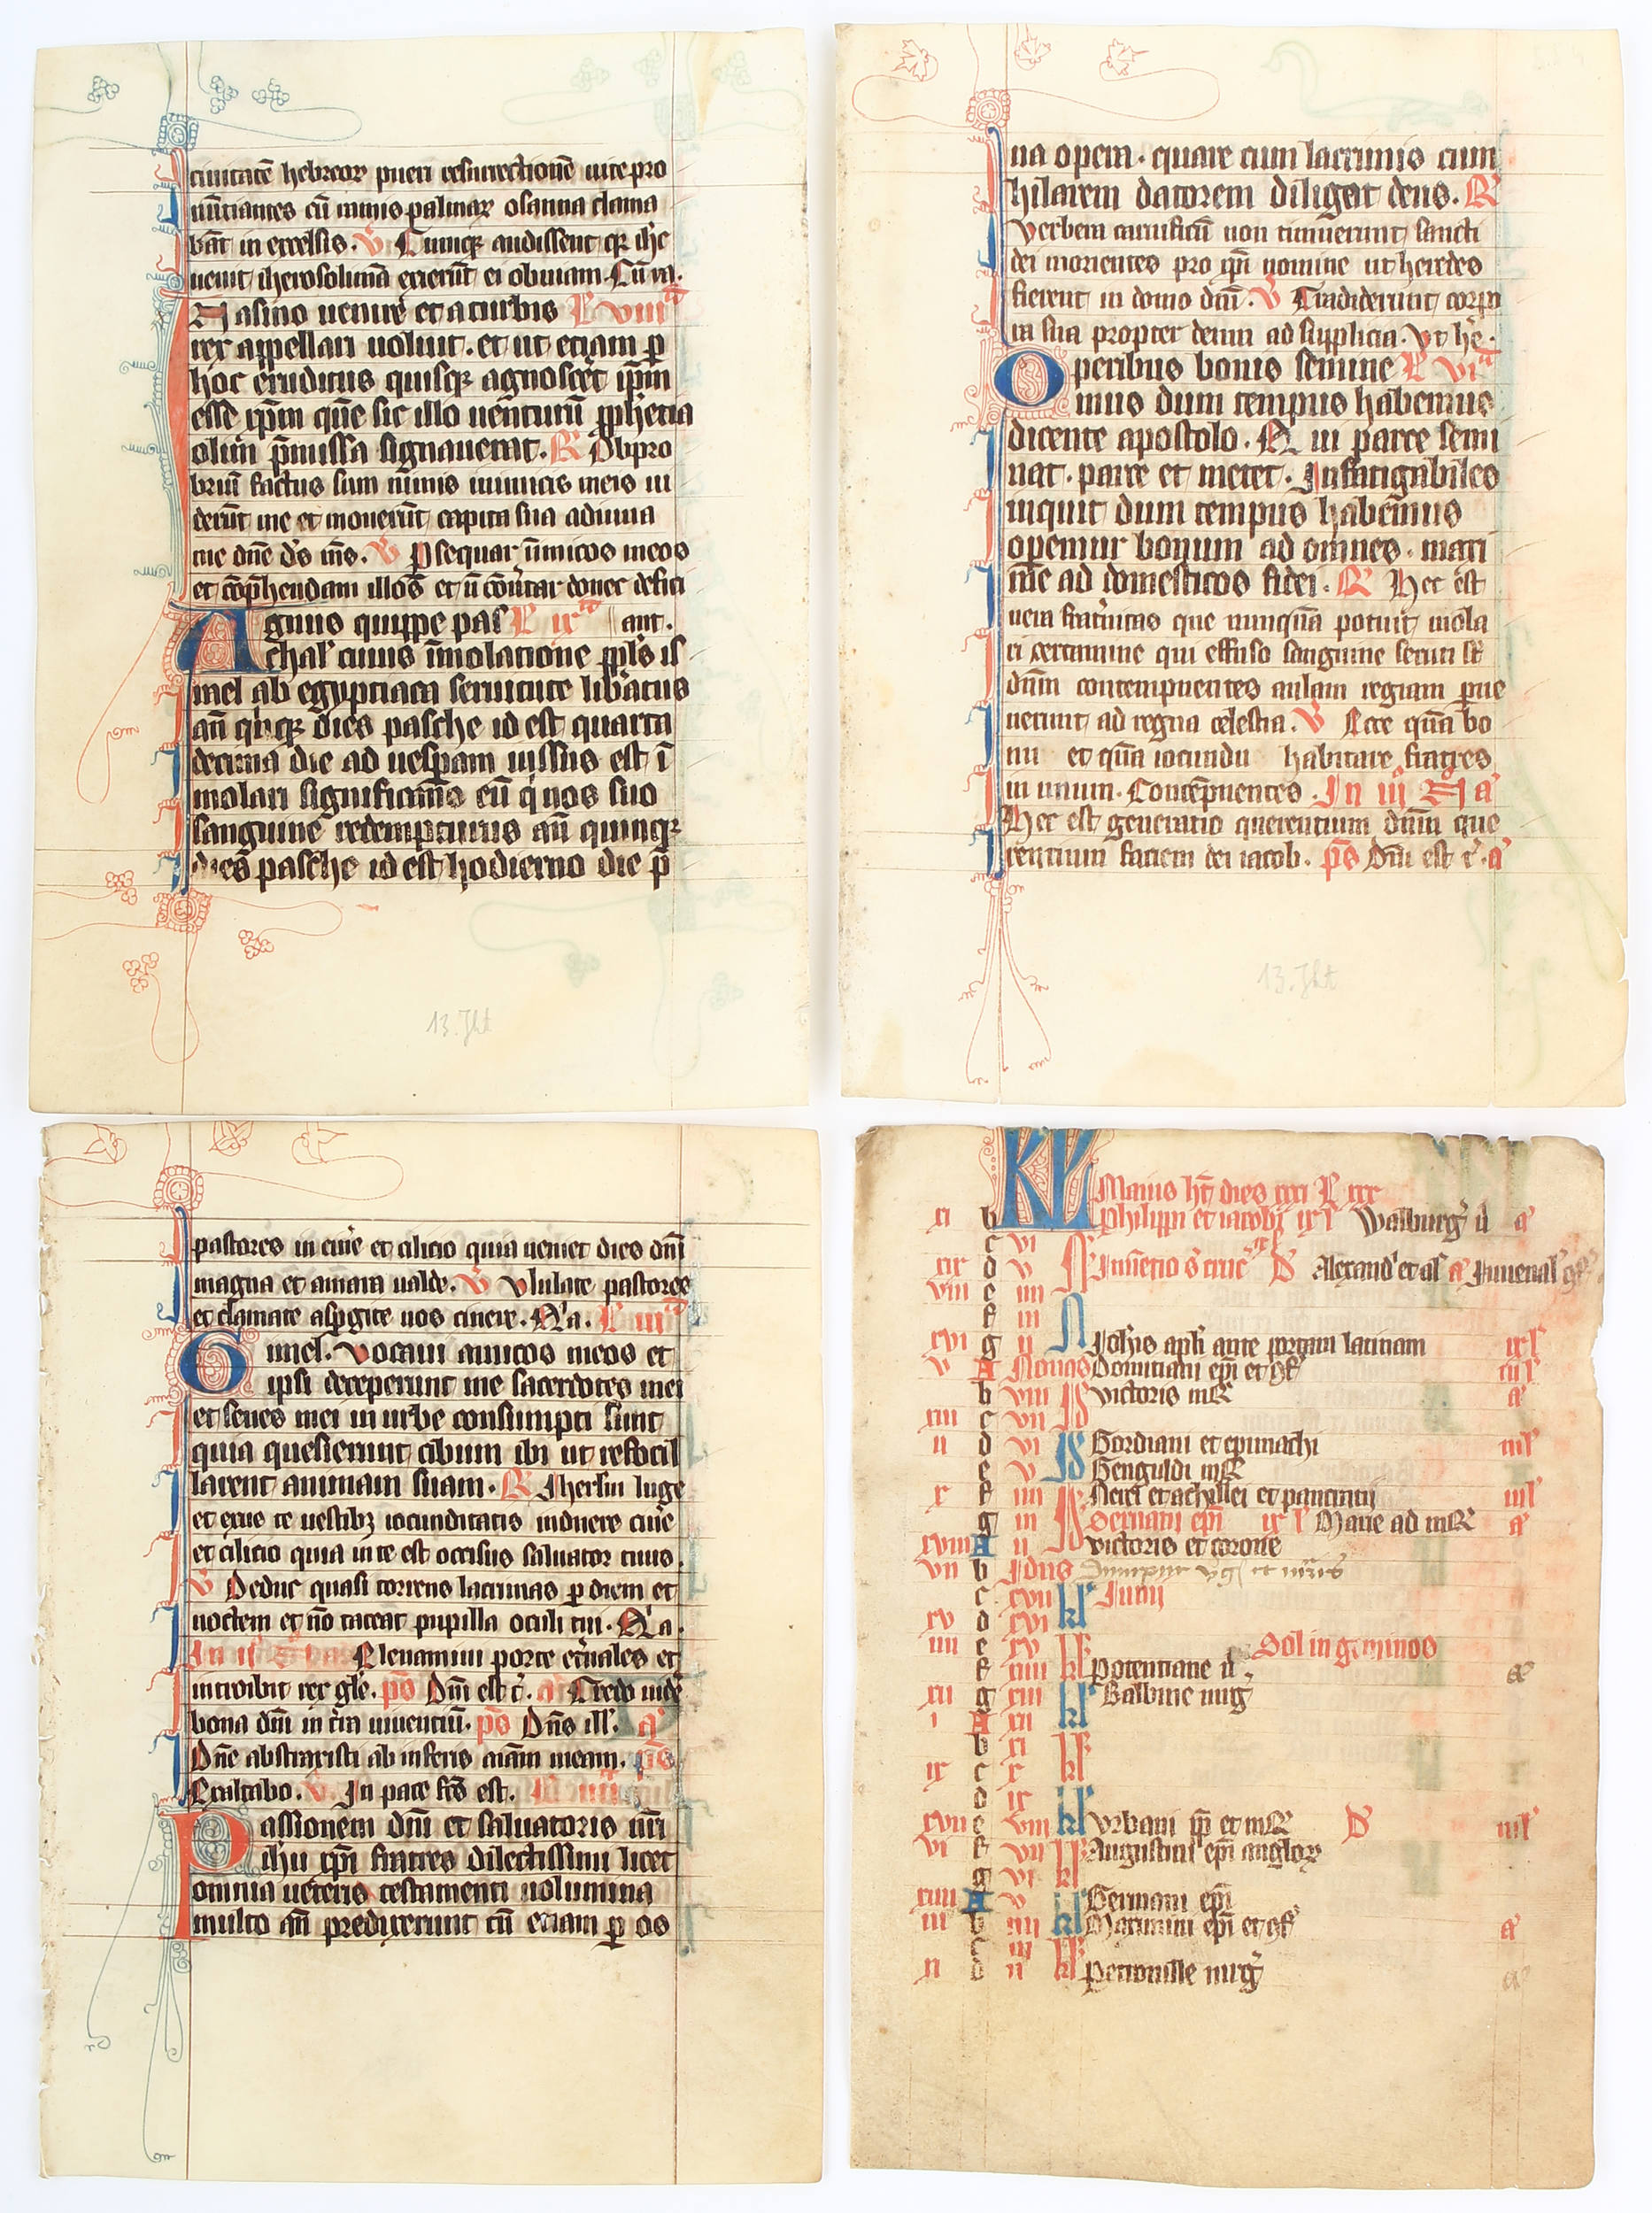 ciuitatē hebreoꝝ pueri resurrectionē uite pro
nūtiantes cū ramis palmaꝝ osanna clama
bāt in excelsis. V Cumqꝫ audissent qꝛ ihc
uenit iherosolimā exierūt ei obuiam. Cū ra.
asino uenire et a turbis L viii
rex appellari uoluit. et ut etiam ꝑ
hoc eruditus quisqꝫ agnoscēt ip̄m
esse xp̄m quē sic illo uenturū ꝓphetia
olim p̄missa signauerat. R Obpro
briū factus sum nimis inimicis meis ui
derūt me et mouerūt capita sua adiuua
me dn̄e d's m̄s. V ꝑsequar inimicos meos
et cōp̄hendam illos et n̄ cōuertar donec defici
Agnus quippe pas L ix ant.
chal' cuius īmolatione ppl's is
rael ab egyptiaca seruitute lib'atus
an̄ qinqꝫ dies pasche id est quarta
decima die ad uesꝑam iussus est ī
molari significans eū qi nos suo
sanguine redempturus an̄ quinqꝫ
dies pasche id est hodierno die p̄
13. Jht
na opem. quare cum lacrimis cum
hilarem datorem diligat deus. R
Verbera carnificū non timuerunt sancti
dei morientes pro xp̄i nomine ut heredes
fierent in domo dn̄i. V Tradiderunt corpo
ra sua propter deum ad supplicia. Vt he.
Operibus bonis semine L vi
mus dum tempus habemus
dicente apostolo. Qui parce semi
nat. parce et metet. Infatigabiles
inquit dum tempus habemus
operemur bonum ad omnes. maxi
me ad domesticos fidei. R Hec est
uera frat'nitas que nunquā potuit uiola
ri certamine qui effuso sanguine secuti st̄
dn̄m contempnentes aulam regiam ꝑue
nerunt ad regna celestia. V Ecce quā bo
nū et quā iocundū habitare fratres
in unum. Contēpnentes. In iii N a'
Hec est generatio querentium dn̄m que
rentium faciem dei iacob. ps Dn̄i est t'. a'
13. Jht
pastores in cin'e et cilicio quia ueniet dies dn̄i
magna et amara ualde. V Vlulate pastores
et clamate asꝑgite uos cinere. Q'a. L iii
Gimel. Vocaui amicos meos et
ipsi deceperunt me sacerdotes mei
et senes mei in urbe consumpti sunt
quia quesierunt cibum ibi ut refocil
larent animam suam. R Iherl'm luge
et exue te uestibꝫ iocunditatis induere cin'e
et cilicio quia in te est occisus saluator tuus.
V Deduc quasi torrens lacrimas ꝑ diem et
noctem et nō taceat pupilla oculi tui. Q'a.
In ii Eleuamini porte et'nales et
introibit rex gl'e. ps Dn̄i est t'. a Credo uide'
bona dn̄i in t'ra uiuentiū. ps Dn̄s ill'. a'
Dn̄e abstraxisti ab inferis aīam meam. ps
Exaltabo. V. In pace fc̄s est. L iiii
Passionem dn̄i et saluatoris nr̄i
ihu xp̄i fratres dilectissimi licet
omnia ueteris testamenti uolumina
multo an̄ predixerunt tn̄ etiam ꝑ os
KL Maius ht̄ dies xxxi L xxx
xi b Philippi et iacobi ix l' Walburg' u̅ a'
c vi
xix d v N Inuētio s crucˢ D Alexand' et al' a' Iuuenal'
viii e iiii
f iii N
xvi g ii Ioh̄is apl'i ante portam latinam ix l'
v A Nonas Domitiani ep̄i et gf' iii l'
b viii Id Victoris mR a'
xiii c vii
ii d vi Id Gordiani et epimachi iii l'
e v Gengulfi mR
x f iiii Id Nerei et achillei et pancratii iii l'
g iii Seruatii ep̄i ix l' Marie ad mR a'
xviii A ii Id Victoris et corone
vii b Idus
c xvii kl' Iunii
xv d xvi
iiii e xv kl' Sol in geminos
f xiiii Potentiane u̅.
xii g xiii kl' Balbine uirg'
i A xii
b xi kl'
ix c x
d ix
xvii e viii kl' Vrbani pp̄ et mR D iii l'
vi f vii kl' Augustini ep̄i angloꝝ
g vi
xiiii A v kl' Germani ep̄i
iii b iiii Maximini ep̄i et gf' a'
c iii kl'
xi d ii Petronille uirg' a'